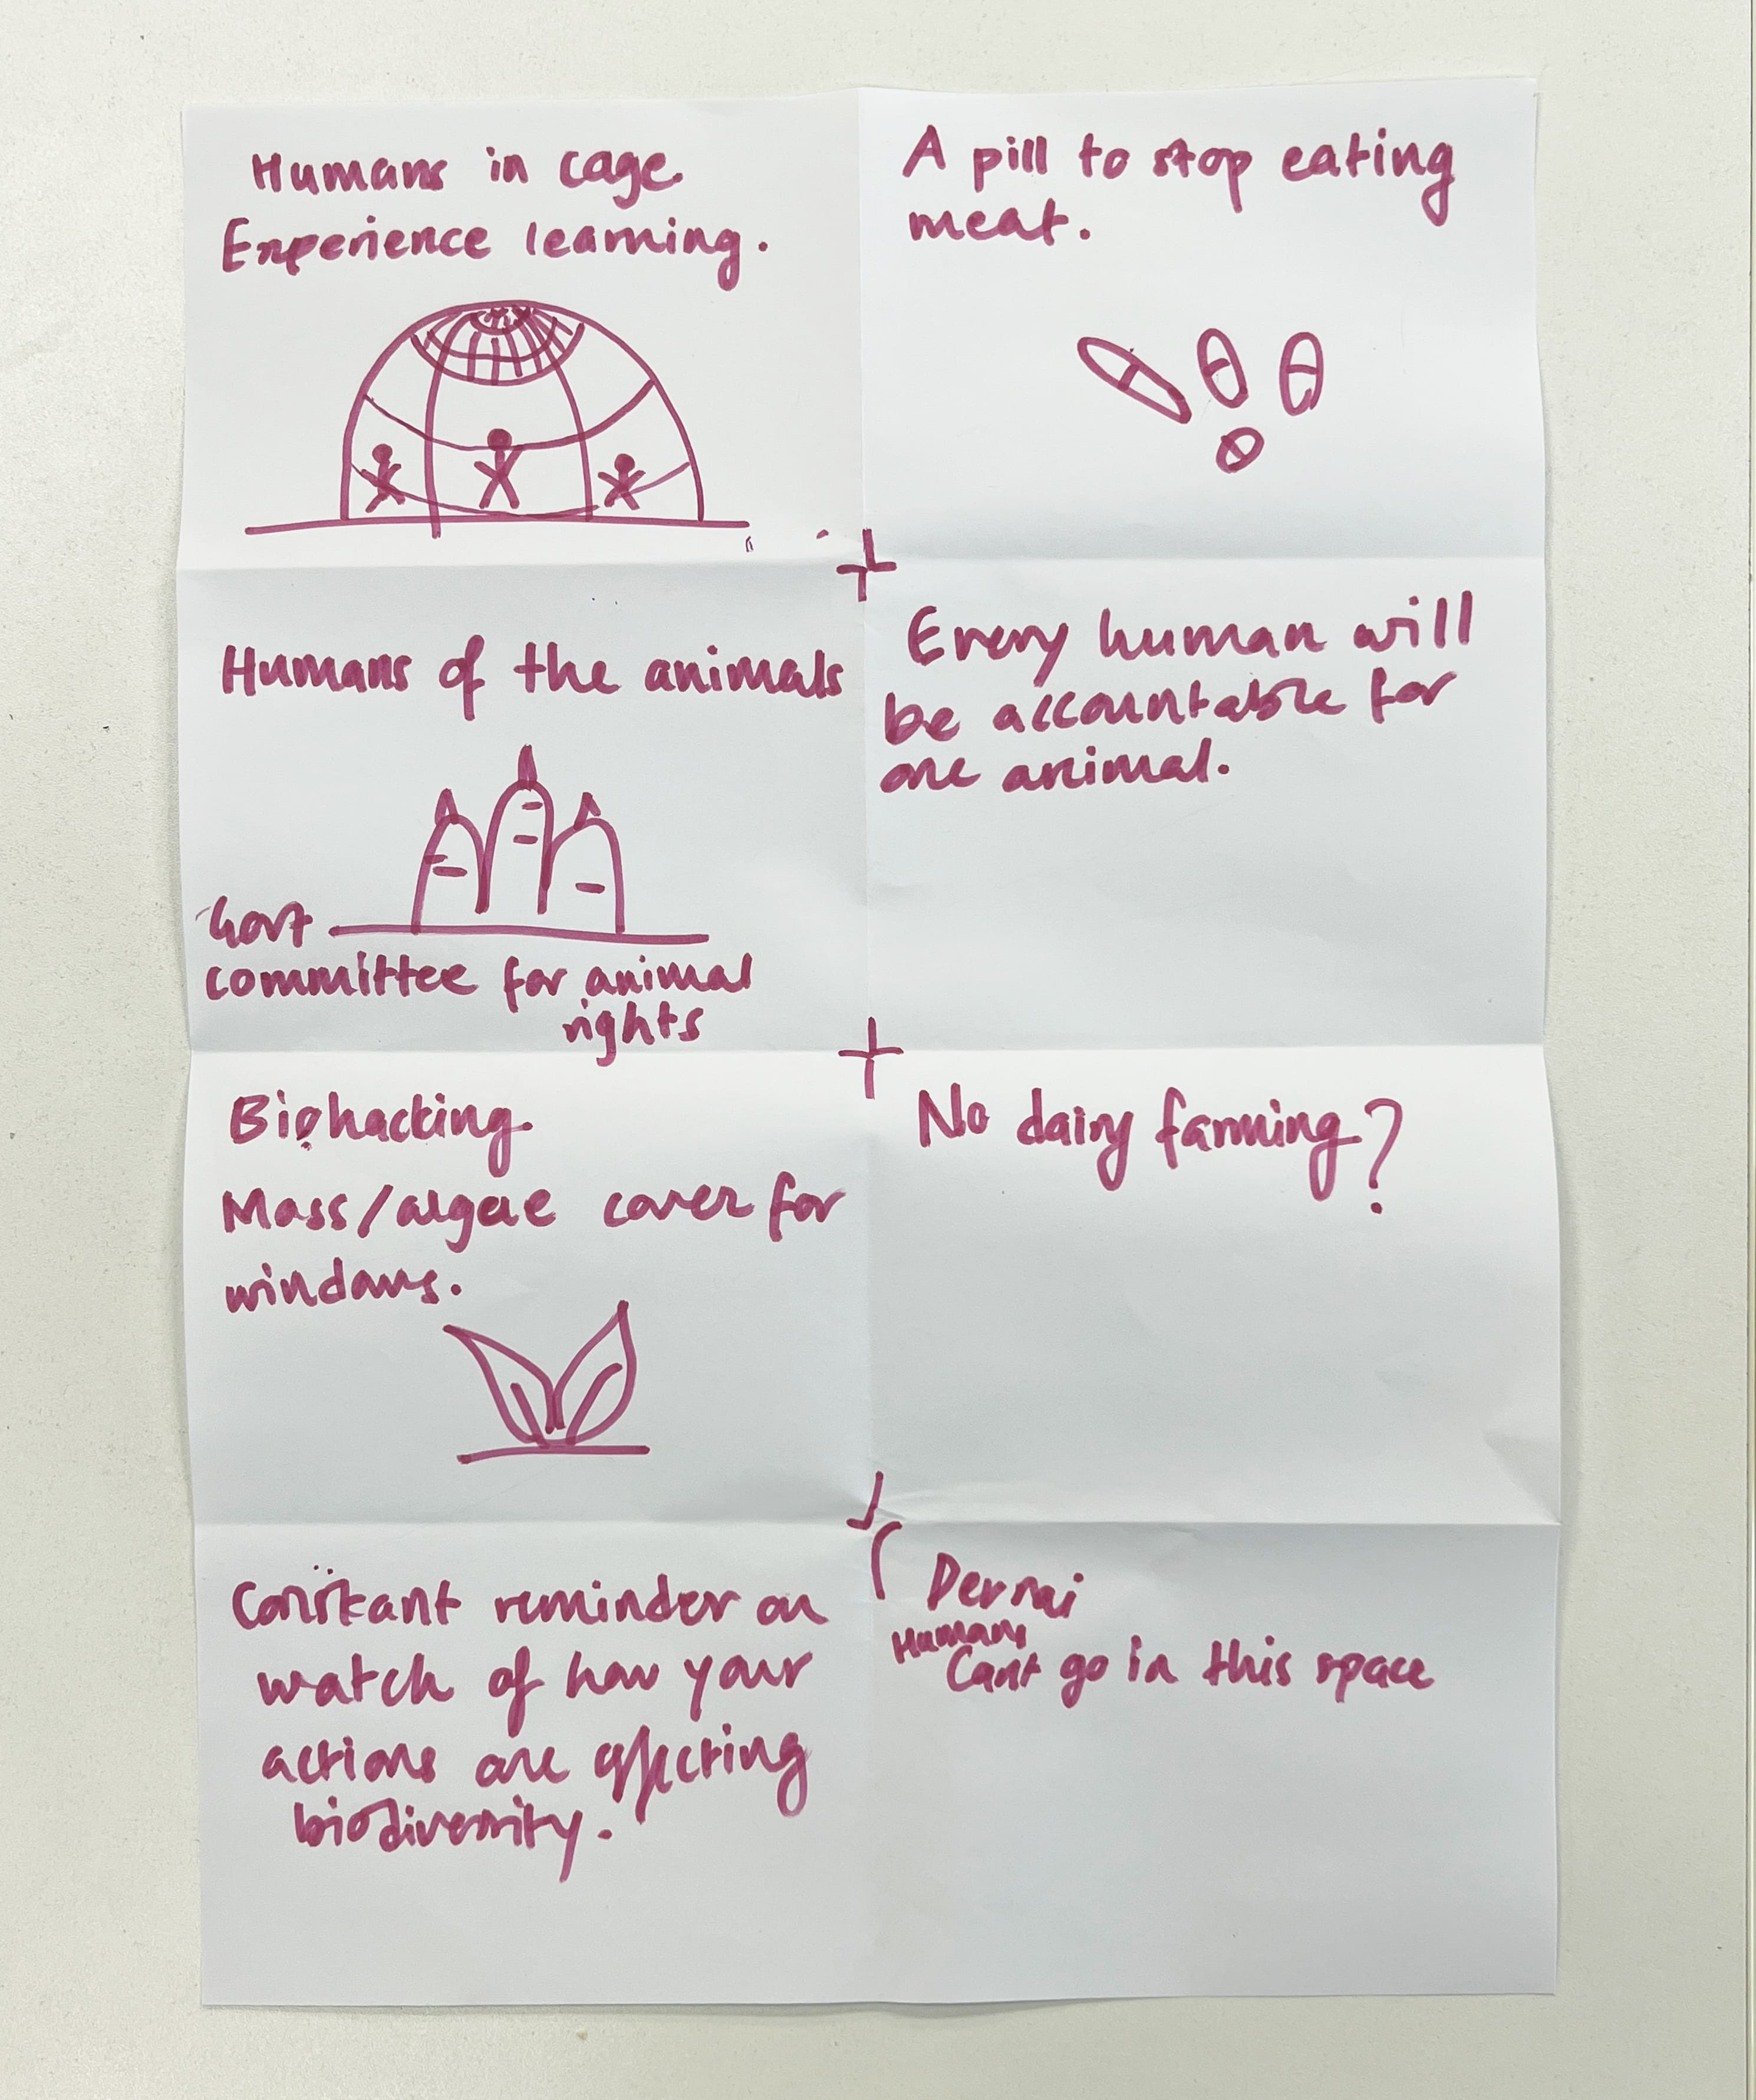 Humans in cage
Experience learning.
A pill to stop eating
meat.
Humans of the animals
Govt
committee for animal
rights
Every human will
be accountable for
one animal.
Biohacking
Moss/algeae cover for
windows.
No dairy farming?
Constant reminder on
watch of how your
actions are effecting
biodiversity.
Humans
Cant go in this space